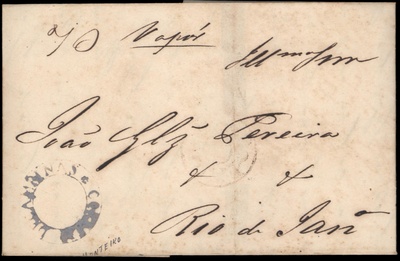 P/ Vapôr
Illmo Snr
João Glz Pereira
& &
Rio de Janº
MONTEIRO